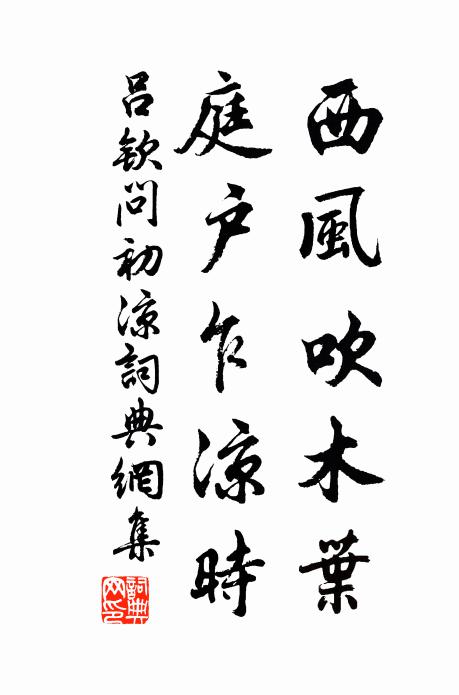 西風吹木葉
庭戶乍涼時
呂欽問初涼詞典網集
詞典網印